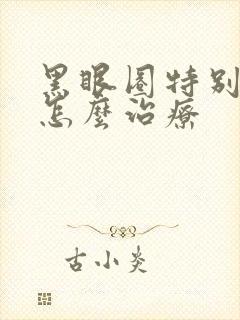 黑眼圈特别
怎麽治療
古小炎